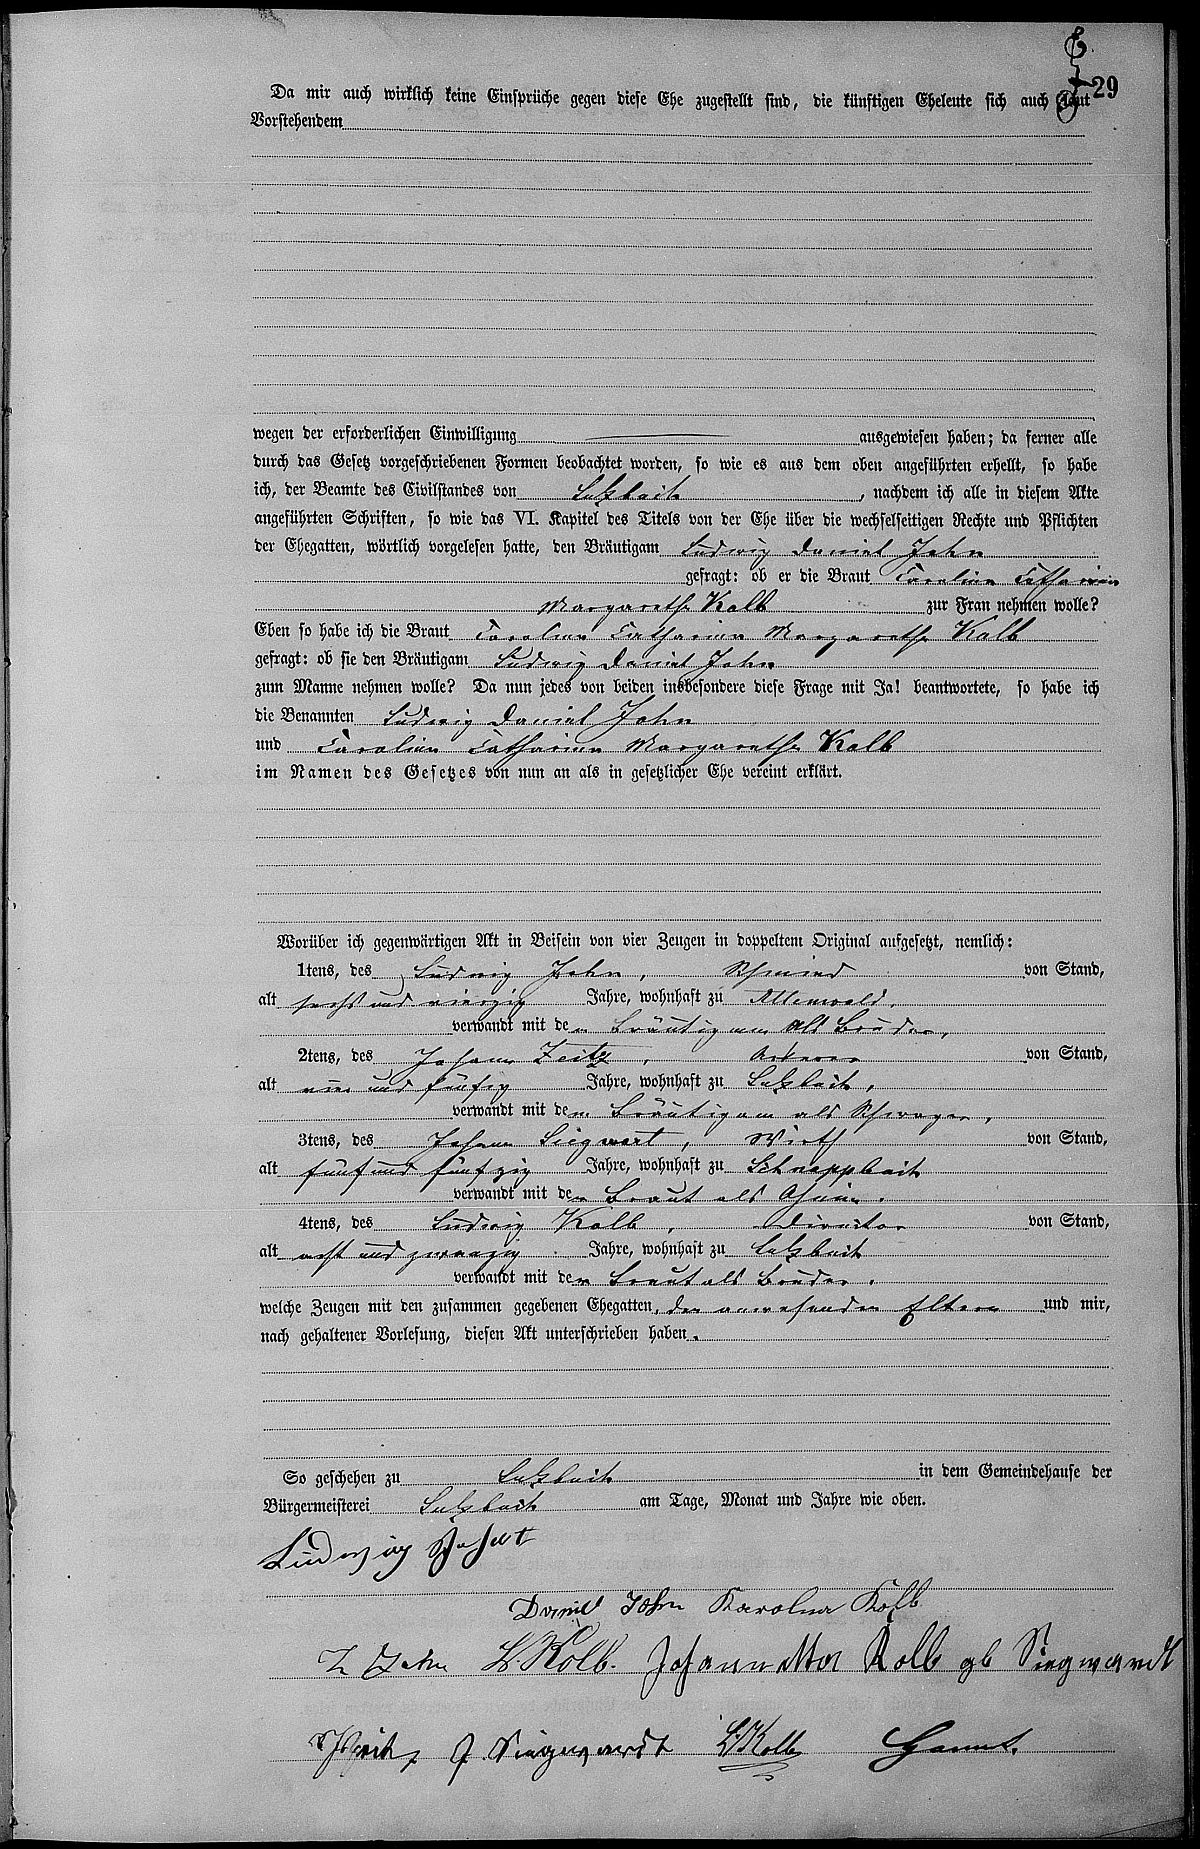 29
Da mir auch wirklich keine Einsprüche gegen diese Ehe zugestellt sind, die künftigen Eheleute sich auch laut
Vorstehendem
wegen der erforderlichen Einwilligung ausgewiesen haben; da ferner alle
durch das Gesetz vorgeschriebenen Formen beobachtet worden, so wie es aus dem oben angeführten erhellt, so habe
ich, der Beamte des Civilstandes von Sulzbach, nachdem ich alle in diesem Akte
angeführten Schriften, so wie das VI. Kapitel des Titels von der Ehe über die wechselseitigen Rechte und Pflichten
der Ehegatten, wörtlich vorgelesen hatte, den Bräutigam Ludwig Daniel John
gefragt: ob er die Braut Carolina Catharina
Margaretha Kolb zur Frau nehmen wolle?
Eben so habe ich die Braut Carolina Catharina Margaretha Kolb
gefragt: ob sie den Bräutigam Ludwig Daniel John
zum Manne nehmen wolle? Da nun jedes von beiden insbesondere diese Frage mit Ja! beantwortete, so habe ich
die Benannten Ludwig Daniel John
und Carolina Catharina Margaretha Kolb
im Namen des Gesetzes von nun an als in gesetzlicher Ehe vereint erklärt.
Worüber ich gegenwärtigen Akt in Beisein von vier Zeugen in doppeltem Original aufgesetzt, nemlich:
1tens, des Ludwig John, Schmied von Stand,
alt sechs und vierzig Jahre, wohnhaft zu Altenwald,
verwandt mit dem Bräutigam als Bruder,
2tens, des Johann Zeitz, Ackerer von Stand,
alt und fünfzig Jahre, wohnhaft zu Sulzbach,
verwandt mit dem Bräutigam als Schwager,
3tens, des Johann Siegwart, Wirth von Stand,
alt fünf und fünfzig Jahre, wohnhaft zu Schnappbach
verwandt mit der Braut als Oheim.
4tens, des Ludwig Kolb, Director von Stand,
alt acht und zwanzig Jahre, wohnhaft zu Sulzbach
verwandt mit der Braut als Bruder.
welche Zeugen mit den zusammen gegebenen Ehegatten, den anwesenden Eltern und mir,
nach gehaltener Vorlesung, diesen Akt unterschrieben haben.
So geschehen zu Sulzbach in dem Gemeindehause der
Bürgermeisterei Sulzbach am Tage, Monat und Jahre wie oben.
Ludwig
Daniel John Karolina Kolb
John L. Kolb. Kolb gb Siegwardt
J Siegwardt L. Kolb